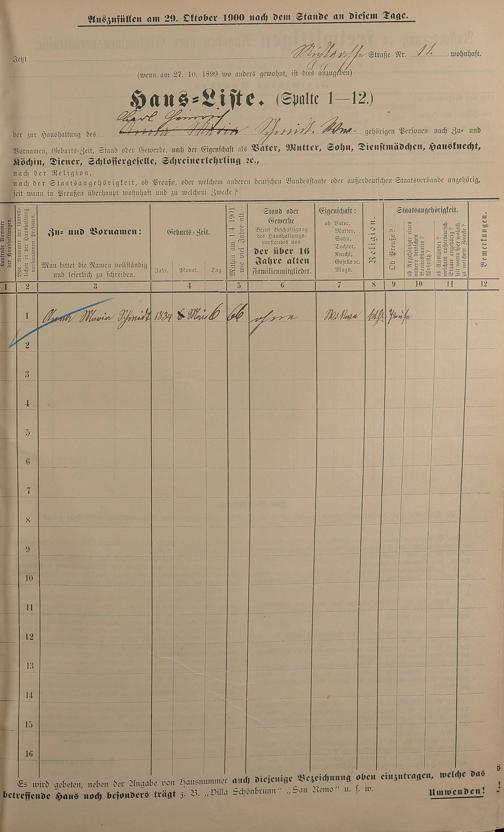 Auszufüllen am 29. Oktober 1900 nach dem Stande an diesem Tage.
Jetzt Straße Nr. 11. wohnhaft.
(wenn am 27. 10. 1899 wo anders gewohnt, ist dies anzugeben)
Haus-Liste. (Spalte 1—12.)
Carl Heinrich
der zur Haushaltung des Anna Maria Schmidt. gehörigen Personen nach Zu- und
Vornamen, Geburts-Zeit, Stand oder Gewerbe, nach der Eigenschaft als Vater, Mutter, Sohn, Dienstmädchen, Hausknecht,
Köchin, Diener, Schlossergeselle, Schreinerlehrling ꝛc.,
nach der Religion,
nach der Staatsangehörigkeit, ob Preuße, oder welchem anderen deutschen Bundesstaate oder außerdeutschen Staatsverbande angehörig,
seit wann in Preußen überhaupt wohnhaft und zu welchem Zwecke?
Zu- und Vornamen:
Man bittet die Namen vollständig
und leserlich zu schreiben.
Geburts-Zeit.
Jahr. Monat. Tag.
Mithin am 1/4 1901
wie viel Jahre alt.
Stand oder
Gewerbe
der über 16
Jahre alten
Familienmitglieder.
Eigenschaft:
ob Vater,
Mutter,
Sohn,
Tochter,
Knecht,
Geselle ꝛc.
Magd.
Religion.
Staatsangehörigkeit.
Ob Preuße?
Bemerkungen.
1 2 3 4 5 6 7 8 9 10 11 12
1 Anna Maria Schmidt 1834 Mai 6 66 ohne
2
3
4
5
6
7
8
9
10
11
12
13
14
15
16
Es wird gebeten, neben der Angabe von Hausnummer auch diejenige Bezeichnung oben einzutragen, welche das
betreffende Haus noch besonders trägt z. B. „Villa Schönbrunn“ „San Remo“ u. s. w. Umwenden!